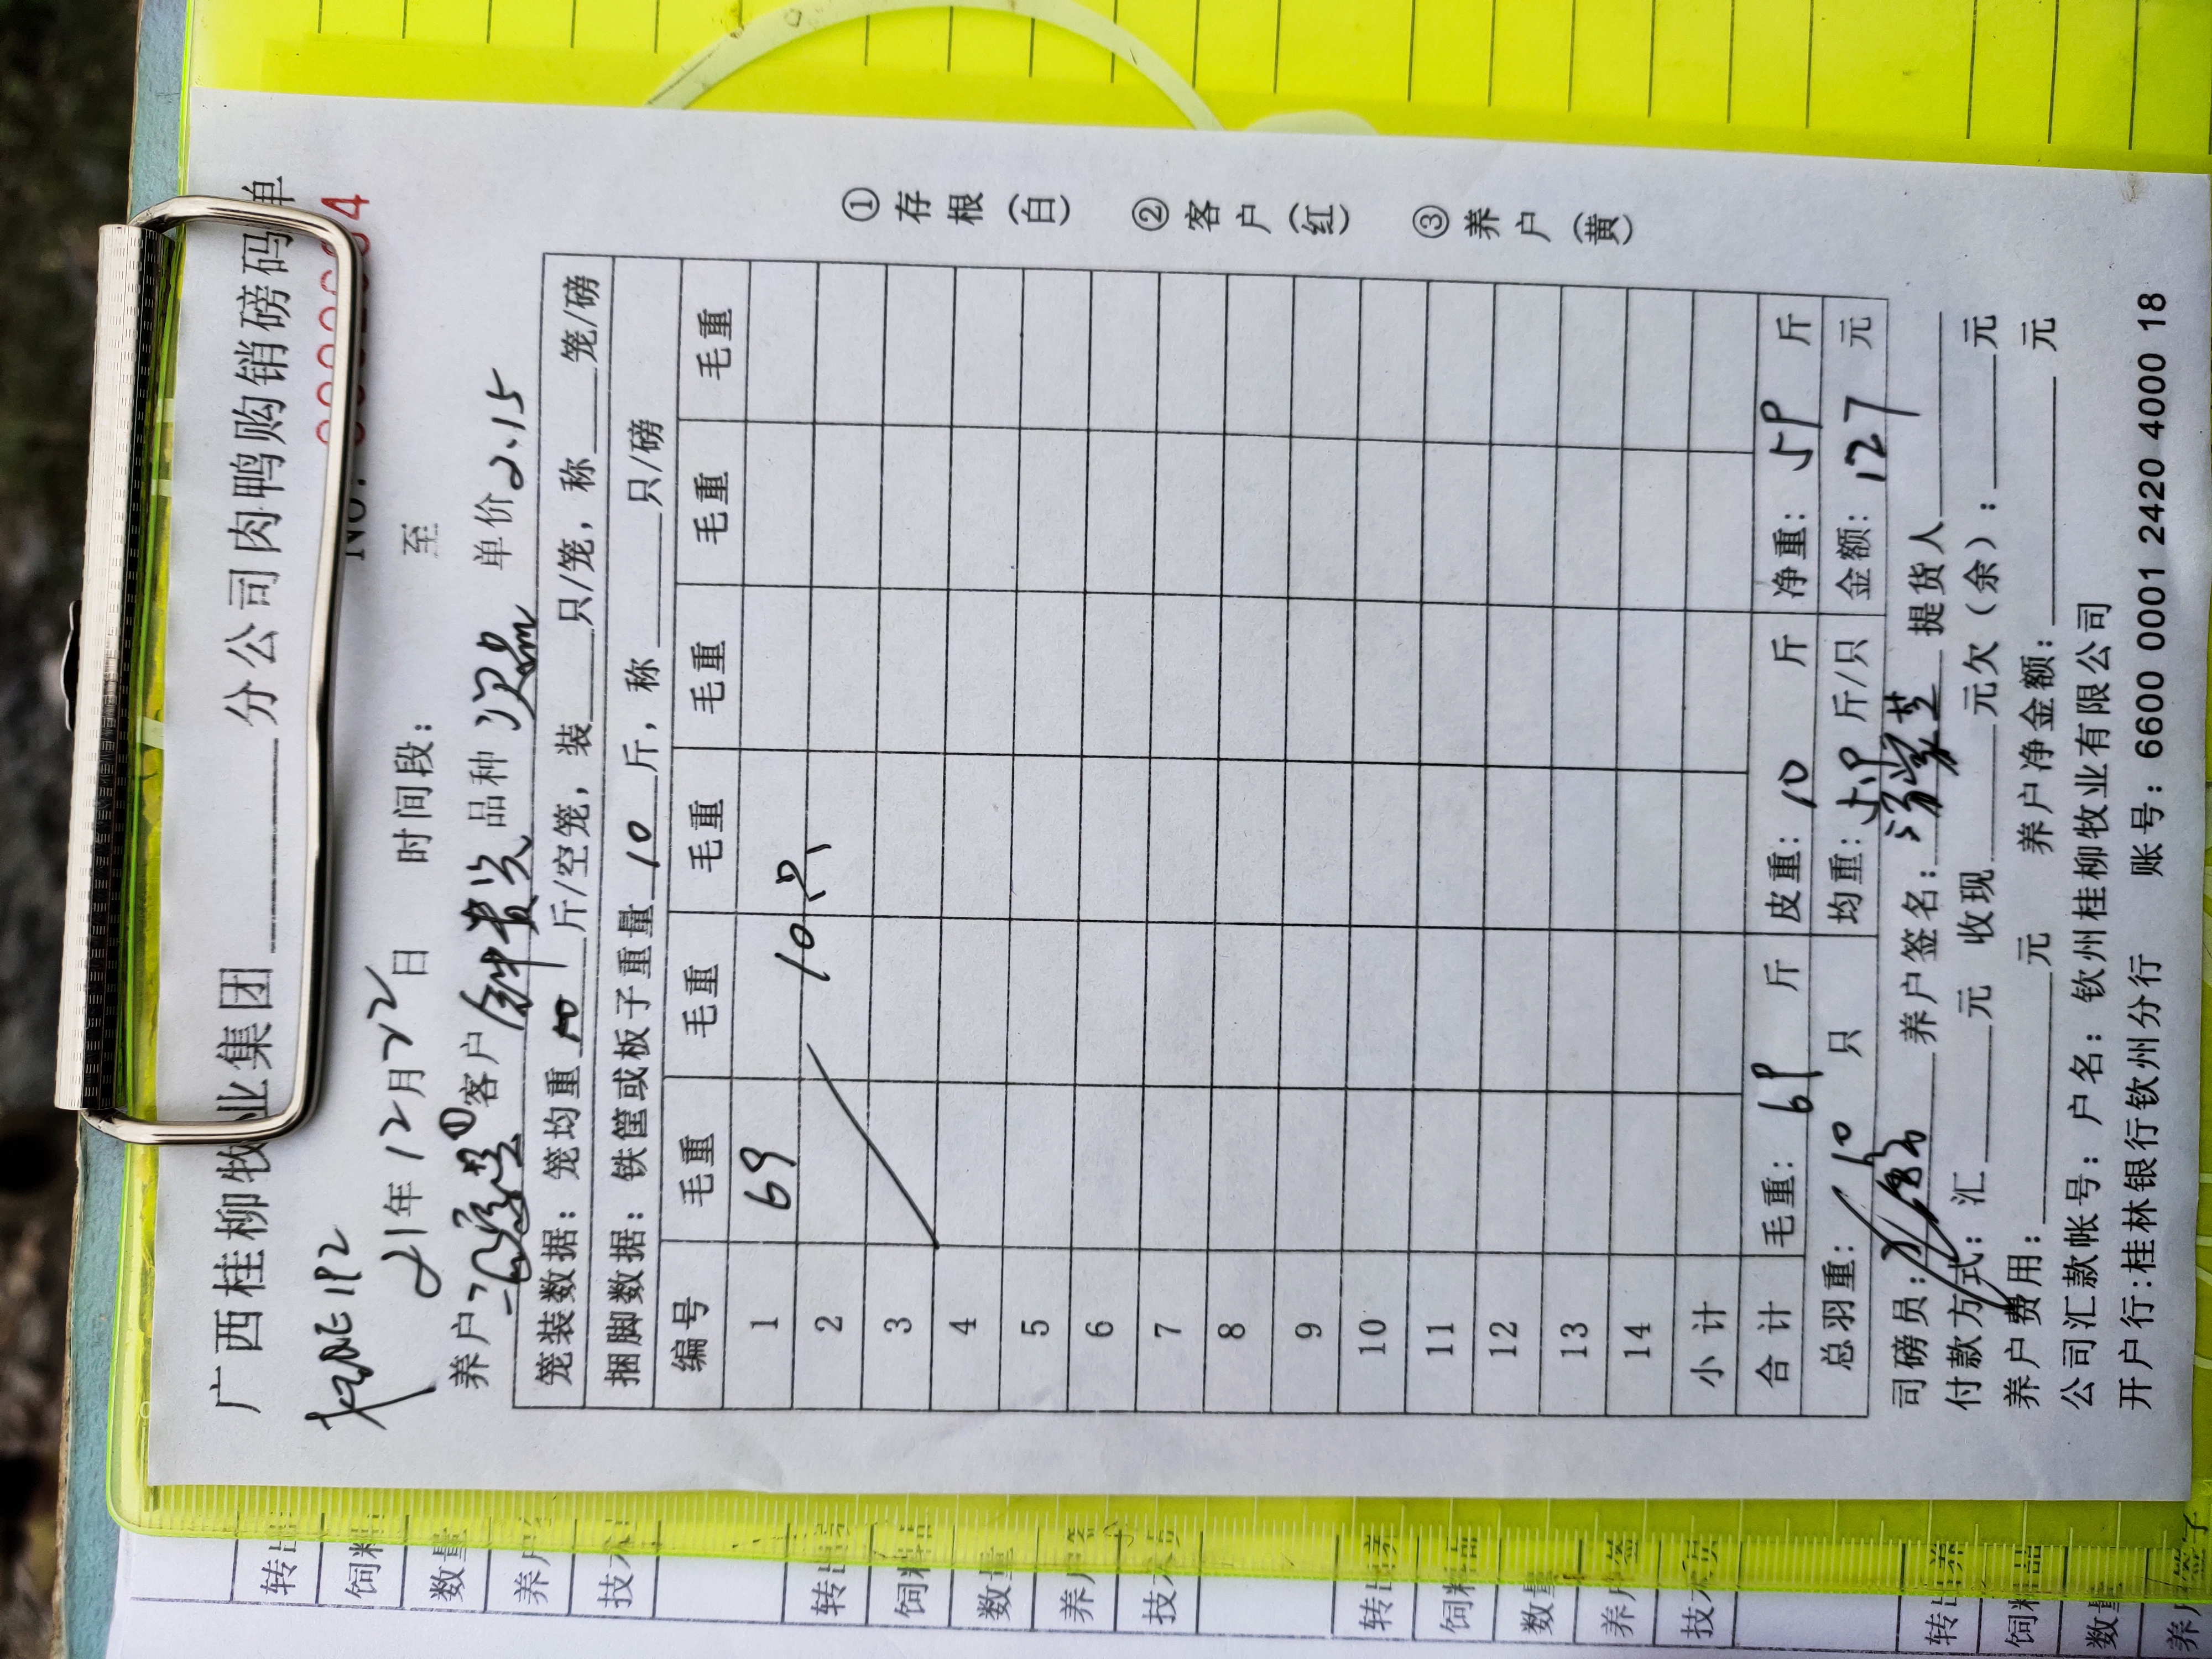 广西桂柳牧业集团 分公司肉鸭购销磅码单
No.
21年12月22日 时间段: 至
养户 ① 客户 品种 次品 单价 2.15
笼装数据: 笼均重 10 斤/空笼, 装 只/笼, 称 笼/磅
捆脚数据: 铁筐或板子重量 10 斤, 称 只/磅
编号 毛重 毛重 毛重 毛重 毛重 毛重
1 69 10只
2
3
4
5
6
7
8
9
10
11
12
13
14
小计
合计 毛重: 69 斤 皮重: 10 斤 净重: 59 斤
总羽重: 10 只 均重: 5.9 斤/只 金额: 127 元
司磅员: 养户签名: 提货人
付款方式: 汇 元 收现 元欠(余): 元
养户费用: 元 养户净金额: 元
公司汇款帐号: 户名: 钦州桂柳牧业有限公司
开户行:桂林银行钦州分行 账号: 6600 0001 2420 4000 18
①存根(白) ②客户(红) ③养户(黄)
数量
养户
数量
数量
数量